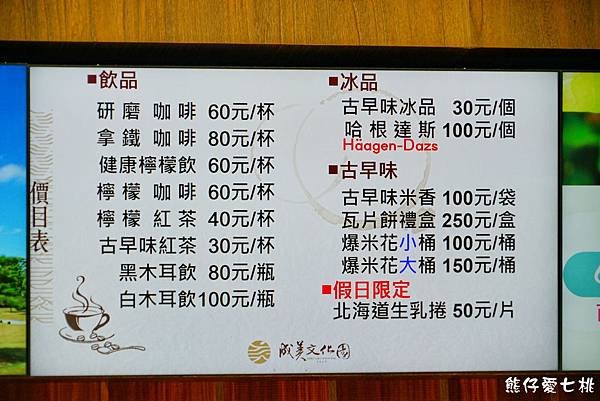 價目表
■飲品
研磨咖啡 60元/杯
拿鐵咖啡 80元/杯
健康檸檬飲 60元/杯
檸檬咖啡 60元/杯
檸檬紅茶 40元/杯
古早味紅茶 30元/杯
黑木耳飲 80元/瓶
白木耳飲100元/瓶
■冰品
古早味冰品 30元/個
哈根達斯 100元/個
Häagen-Dazs
■古早味
古早味米香 100元/袋
瓦片餅禮盒 250元/盒
爆米花小桶 100元/桶
爆米花大桶 150元/桶
■假日限定
北海道生乳捲 50元/片
成美文化園
熊仔愛七桃